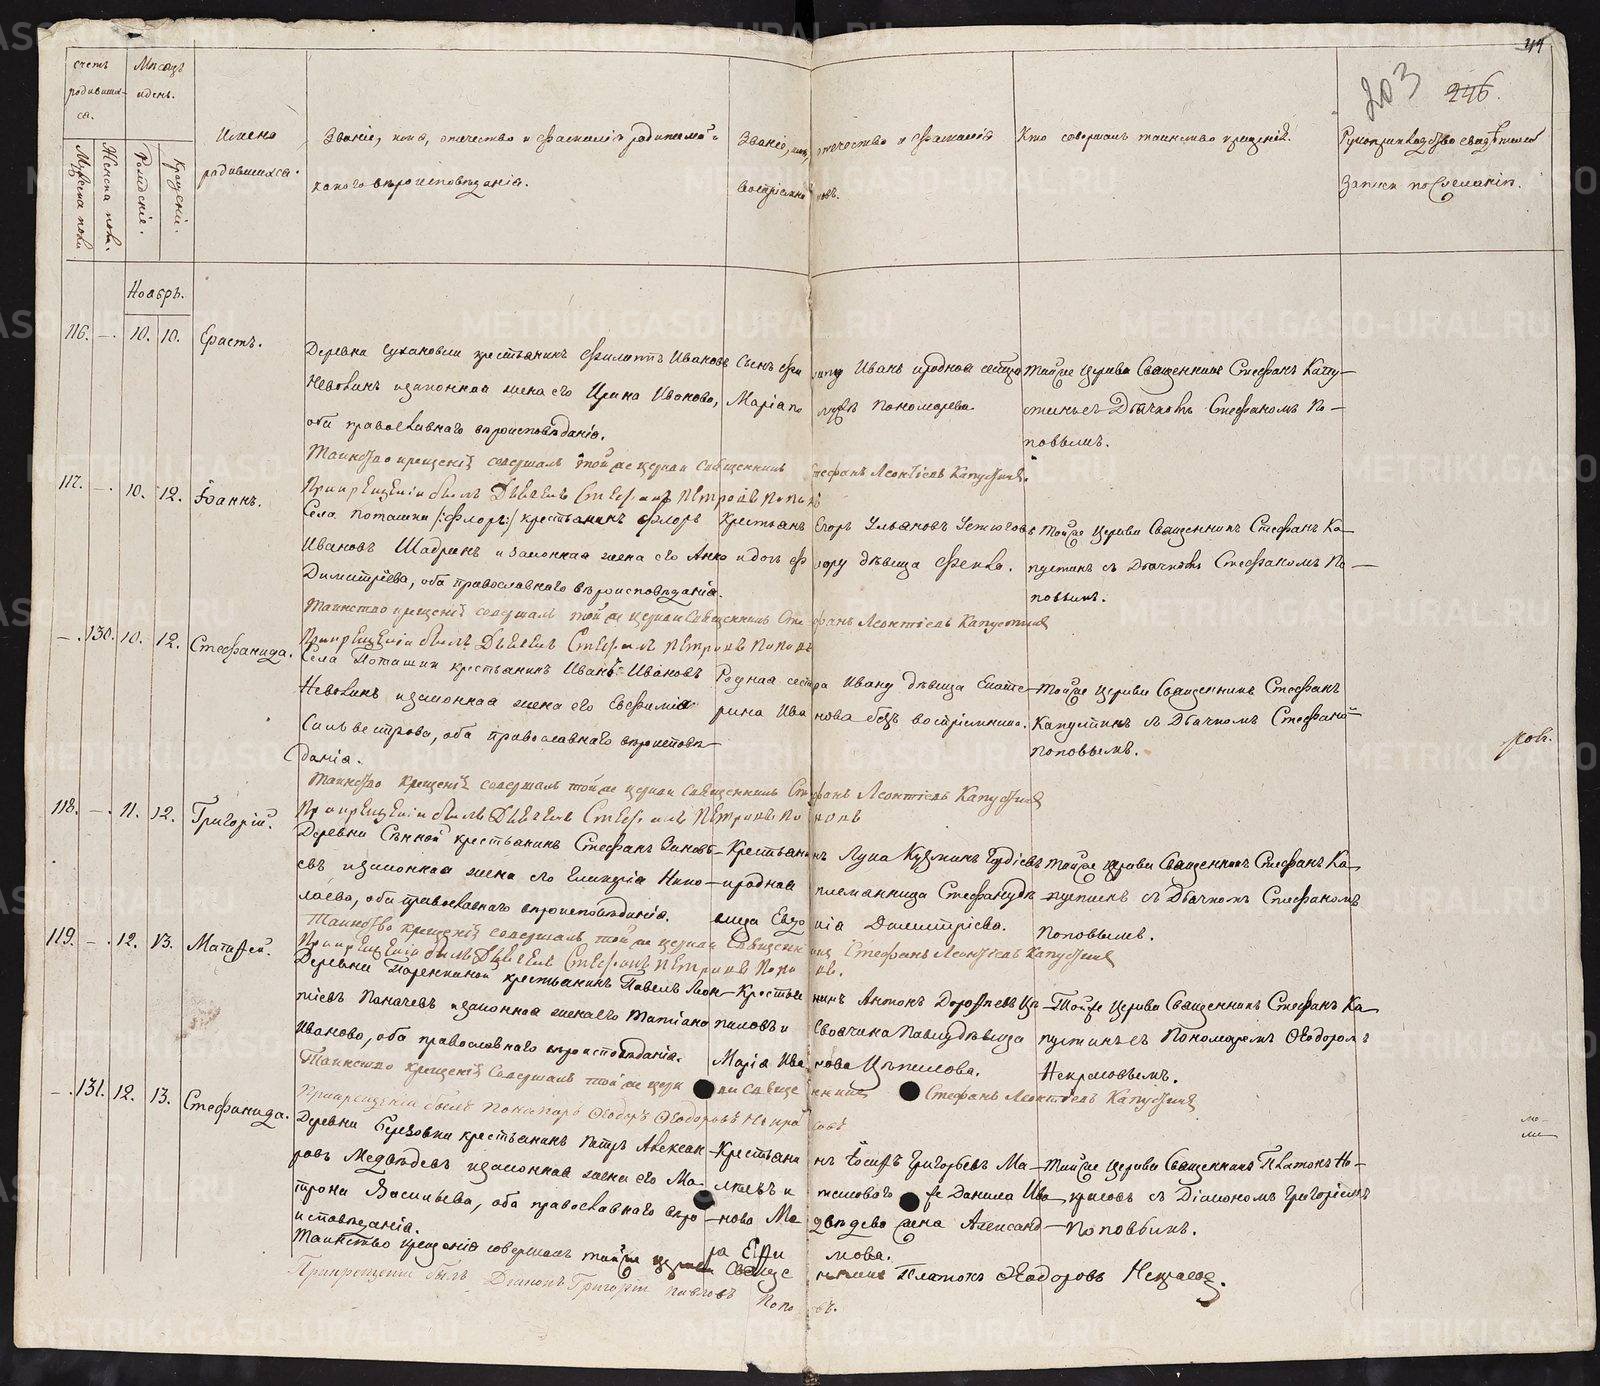 203 246.
счетъ родившихса.
Мѣсяцъ и день.
Мужеска пола
Женска пола.
Рожденіе.
Крещеніе.
Имена родившихса.
Званіе, имя, отечество и фамилія родителей и
какого вѣроисповѣданія.
Званіе, имя, отечество и фамилія
воспріемниковъ.
Кто совершалъ таинство крещенія.
Рукоприкладство свидѣтелей
записи по желанію.
Ноабрь.
116. — 10. 10. Ерастъ.
Деревни Сухановки крестьянинъ Филиппъ Ивановъ
Неволинъ и законная жена его Ирина Иванова,
оба православнаго вѣроисповѣданія.
Сынъ Филиппу Иванъ и родная сестра
Марія Пономарева.
Тойже церкви Священникъ Стефанъ Капу-
стинъ съ Дьячкомъ Стефаномъ По-
повымъ.
Таинство крещенія совершалъ той же церкви священникъ Стефанъ Леонтіевъ Капустинъ.
При крещеніи былъ Дьячекъ Стефанъ Петровъ Поповъ
117. — 10. 12. Іоаннъ.
Села Поташки /:Флоръ:/ крестьянинъ Флоръ
Ивановъ Шадринъ и законная жена его Анна
Димитріева, оба православнаго вѣроисповѣданія.
Крестьянъ Егоръ Ульановъ Устюговъ
и дочь Флору дѣвица Фекла.
Тойже Церкви Священникъ Стефанъ Ка-
пустинъ съ Дьячкомъ Стефаномъ По-
повымъ.
Таинство крещенія совершалъ той же церкви Священникъ Стефанъ Леонтіевъ Капустинъ
При крещеніи былъ Дьячекъ Стефанъ Петровъ Поповъ
— 130. 10. 12. Стефанида.
Села Поташки крестьянинъ Иванъ Ивановъ
Неволинъ и законная жена его Евфимія
Сильвестрова, оба православнаго вѣроисповѣ-
данія.
Родная сестра Ивану дѣвица Екате-
рина Иванова безъ воспріемника.
Тойже Церкви Священникъ Стефанъ
Капустинъ съ Дьячкомъ Стефаномъ
Поповымъ.
Таинство крещенія совершалъ той же церкви Священникъ Стефанъ Леонтіевъ Капустинъ
При крещеніи былъ Дьячекъ Стефанъ Петровъ Поповъ
118. — 11. 12. Григорій.
Деревни Сѣнной крестьянинъ Стефанъ Зиновь-
евъ и законная жена его Гликерія Нико-
лаева, оба православнаго вѣроисповѣданія.
Крестьянинъ Лука Кузминъ
и родная племанница Стефану дѣ-
вица Евдокія Димитріева.
Тойже церкви Священникъ Стефанъ Ка-
пустинъ съ Дьячкомъ Стефаномъ
Поповымъ.
Таинство крещенія совершалъ той же церкви Священникъ Стефанъ Леонтіевъ Капустинъ
При крещеніи былъ Дьячекъ Стефанъ Петровъ Поповъ.
119. — 12. 13. Матѳей.
Деревни крестьянинъ Павелъ Леон-
тіевъ Паначевъ и законная жена его Татіана
Иванова, оба православнаго вѣроисповѣданія.
Крестьянинъ Антонъ Дороѳеевъ Цѣ-
пиловъ и своячина Павлу дѣвица
Марія Иванова Цѣпилова.
Тойже Церкви Священникъ Стефанъ Ка-
пустинъ съ Пономаремъ Ѳеодоромъ
Некрасовымъ.
Таинство крещенія Совершалъ той же церкви священникъ Стефанъ Леонтіевъ Капустинъ
При крещеніи былъ Пономарь Ѳеодоръ Ѳеодоровъ Некрасовъ
— 131. 12. 13. Стефанида.
Деревни Березовки крестьянинъ Петръ Алексан-
ровъ Медвѣдевъ и законная жена его Ма-
трона Васильева, оба православнаго вѣро-
исповѣданія.
Крестьянинъ Іосифъ Григорьевъ
и Данила Ива-
нова Медвѣдева жена Александ-
ра
Тойже Церкви Священникъ Платонъ
съ Діакономъ Григоріемъ
Поповымъ.
Таинство крещенія совершалъ тойже церкви Священникъ Платонъ Ѳеодоровъ
При крещеніи былъ Діаконъ Григорій Павловъ Поповъ.
METRIKI.GASO-URAL.RU